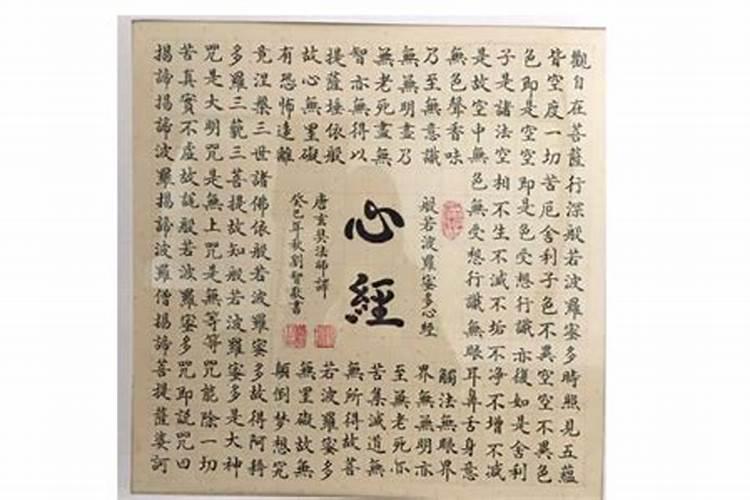 觀自在菩薩行深般若波羅蜜多時照見五蘊
皆空度一切苦厄舍利子色不異空空不異色
色即是空空即是色受想行識亦復如是舍利
子是諸法空相不生不滅不垢不淨不增不減
是故空中無色無受想行識無眼耳鼻舌身意
無色聲香味
觸法無眼界
乃至無意識
界無無明亦
無無明盡乃
至無老死亦
無老死盡無
苦集滅道無
智亦無得以
無所得故菩
提薩埵依般
若波羅蜜多
故心無罣礙
無罣礙故無
有恐怖遠離
顛倒梦想究
竟涅槃三世諸佛依般若波羅蜜多故得阿耨
多羅三藐三菩提故知般若波羅蜜多是大神
咒是大明咒是無上咒是無等等咒能除一切
苦真實不虛故說般若波羅蜜多咒即説咒曰
揚諦揚諦波羅揚諦波羅僧揚諦菩提薩婆訶
般若波羅蜜多心經
心經
唐玄奘法師譯
癸巳年秋劉智書